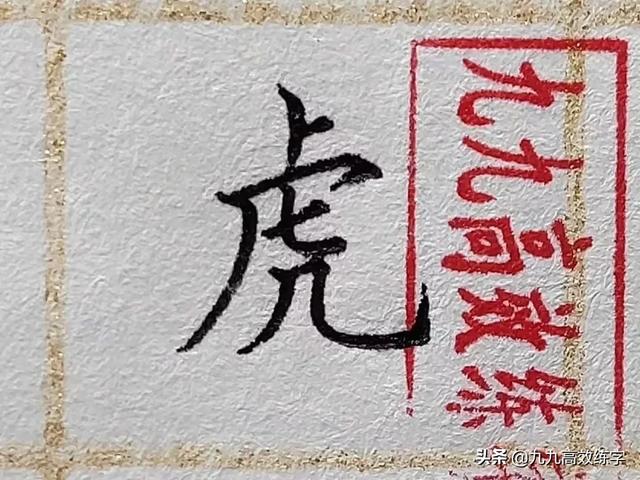 虎
九九高效练
头条 @九九高效练字